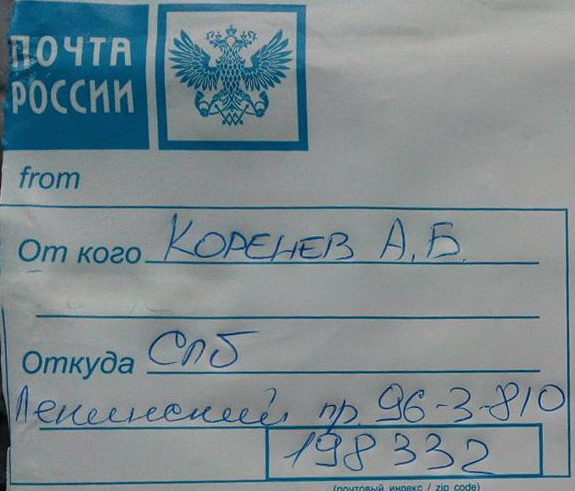 ПОЧТА
РОССИИ
from
От кого КОРЕНЕВ А.Б.
Откуда СПб
Ленинский пр. 96-3-810
198332
(почтовый индекс / zip code)